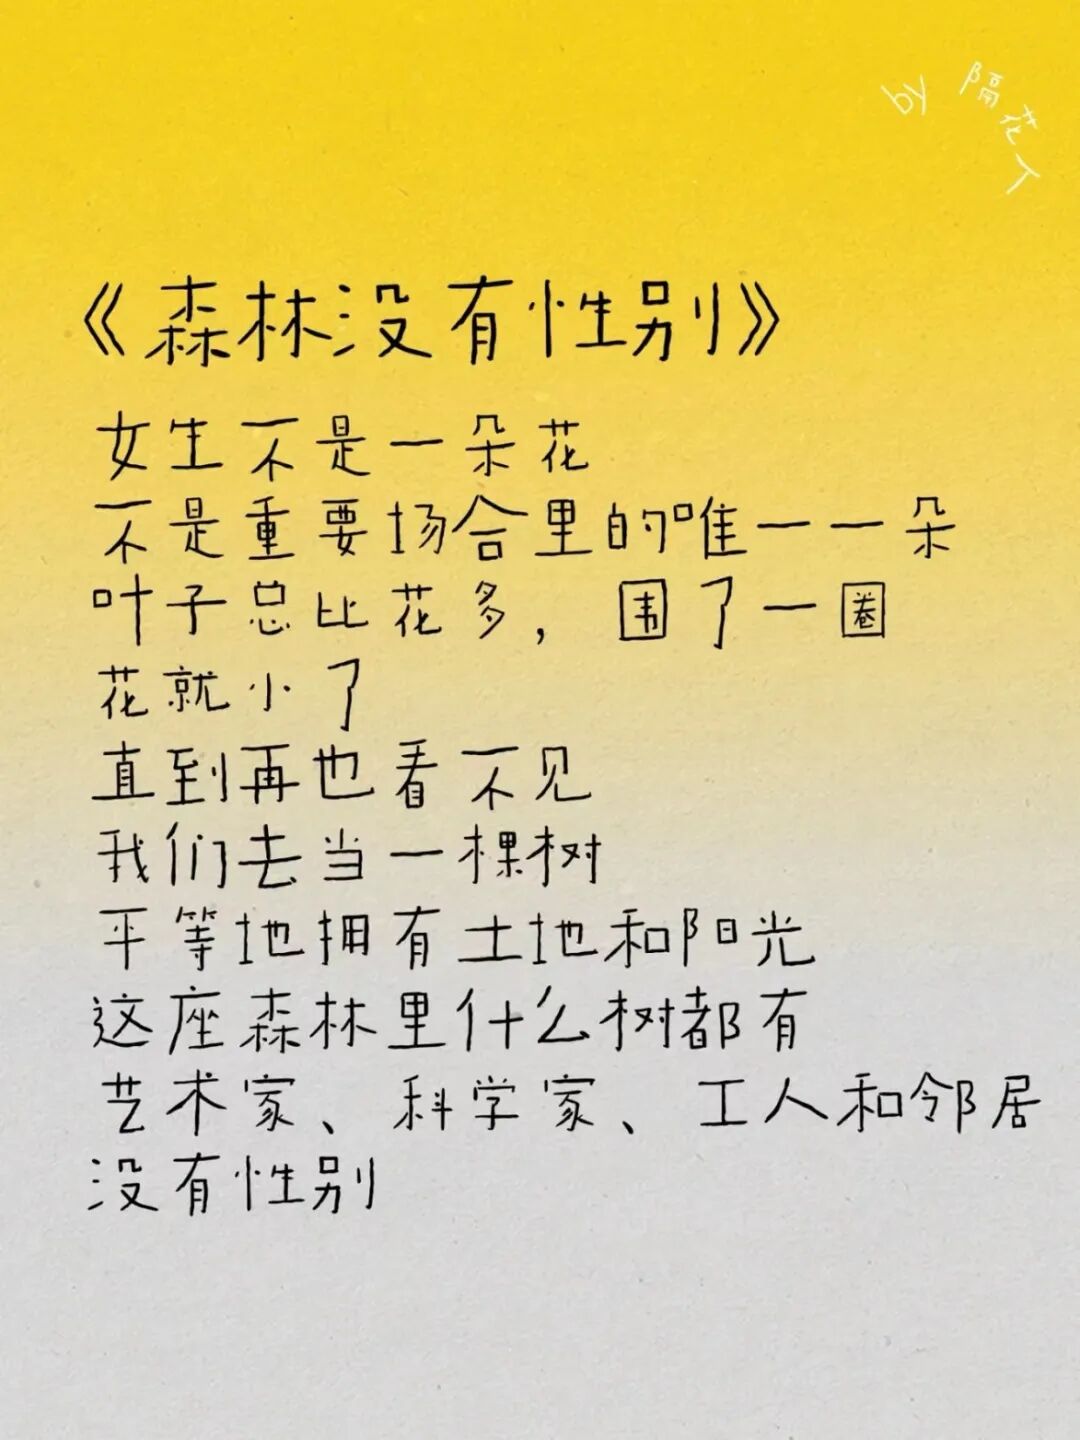 by 隔花人
《森林没有性别》
女生不是一朵花
不是重要场合里的唯一一朵
叶子总比花多，围了一圈
花就小了
直到再也看不见
我们去当一棵树
平等地拥有土地和阳光
这座森林里什么树都有
艺术家、科学家、工人和邻居
没有性别